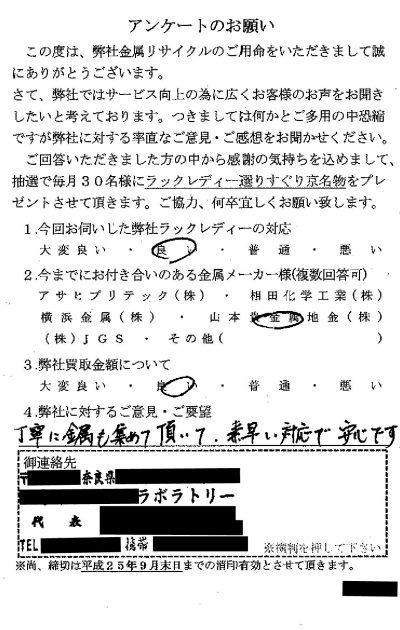 アンケートのお願い
この度は、弊社金属リサイクルのご用命をいただきまして誠
にありがとうございます。
さて、弊社ではサービス向上の為に広くお客様のお声をお聞き
したいと考えております。つきましては何かとご多用の中恐縮
ですが弊社に対する率直なご意見・ご感想をお聞かせください。
ご回答いただきました方の中から感謝の気持ちを込めまして、
抽選で毎月30名様にラックレディー選りすぐり京名物をプレ
ゼントさせて頂きます。ご協力、何卒宜しくお願い致します。
1.今回お伺いした弊社ラックレディーの対応
大変良い ・ 良い ・ 普通 ・ 悪い
2.今までにお付き合いのある金属メーカー様(複数回答可)
アサヒプリテック(株) ・ 相田化学工業(株)
横浜金属(株) ・ 山本貴金属地金(株)
(株)JGS ・ その他( )
3.弊社買取金額について
大変良い ・ 良い ・ 普通 ・ 悪い
4.弊社に対するご意見・ご要望
丁寧に金属も集めて頂いて、素早い対応で安心です
御連絡先
〒 奈良県
ラボラトリー
代表
TEL 携帯
※捺印を押して下さい
※尚、締切は平成25年9月末日までの消印有効とさせて頂きます。